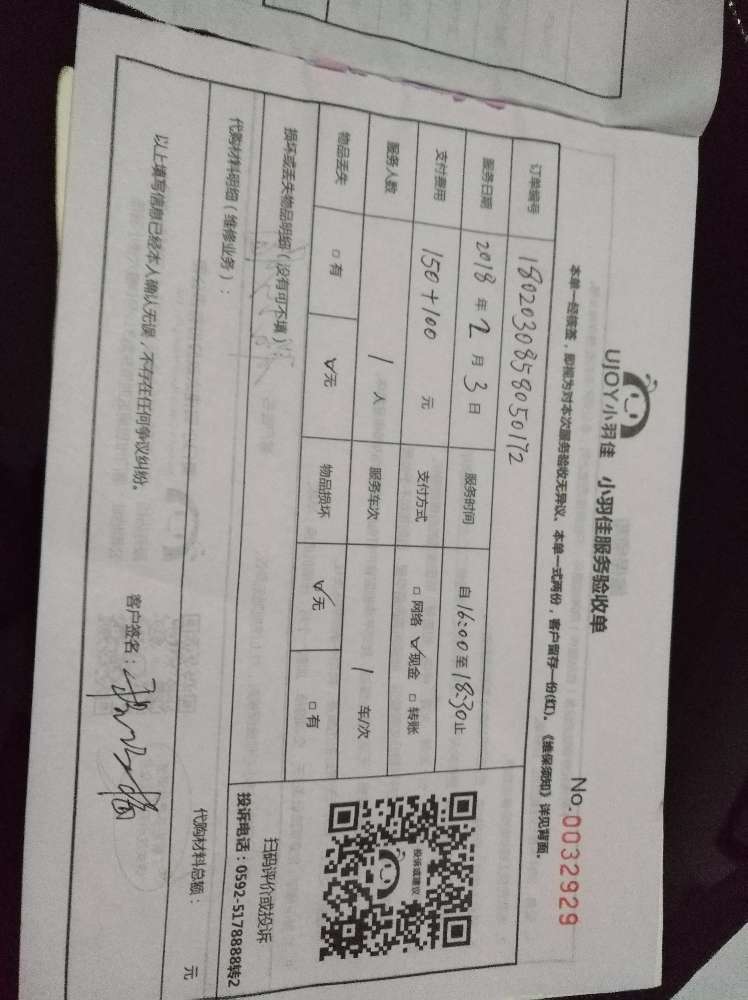 UJOY小羽佳 小羽佳服务验收单
No.0032929
本单一经核签，即视为对本次服务验收无异议。本单一式两份，客户留存一份(红)。《维保须知》详见背面。
订单编号 1802030858050172
服务日期 2018年2月3日 服务时间 自16:00至18:30止
支付费用 150+100 元 支付方式 □网络 ☑现金 □转账
服务人数 1 人 服务车次 1 车/次
物品丢失 □有 ☑无 物品损坏 ☑无 □有
损坏或丢失物品明细（没有可不填）：
代购材料明细（维修业务）： 代购材料总额： 元
投诉或建议
扫码评价或投诉
投诉电话：0592-5178888转2
以上填写信息已经本人确认无误，不存在任何争议纠纷。 客户签名：